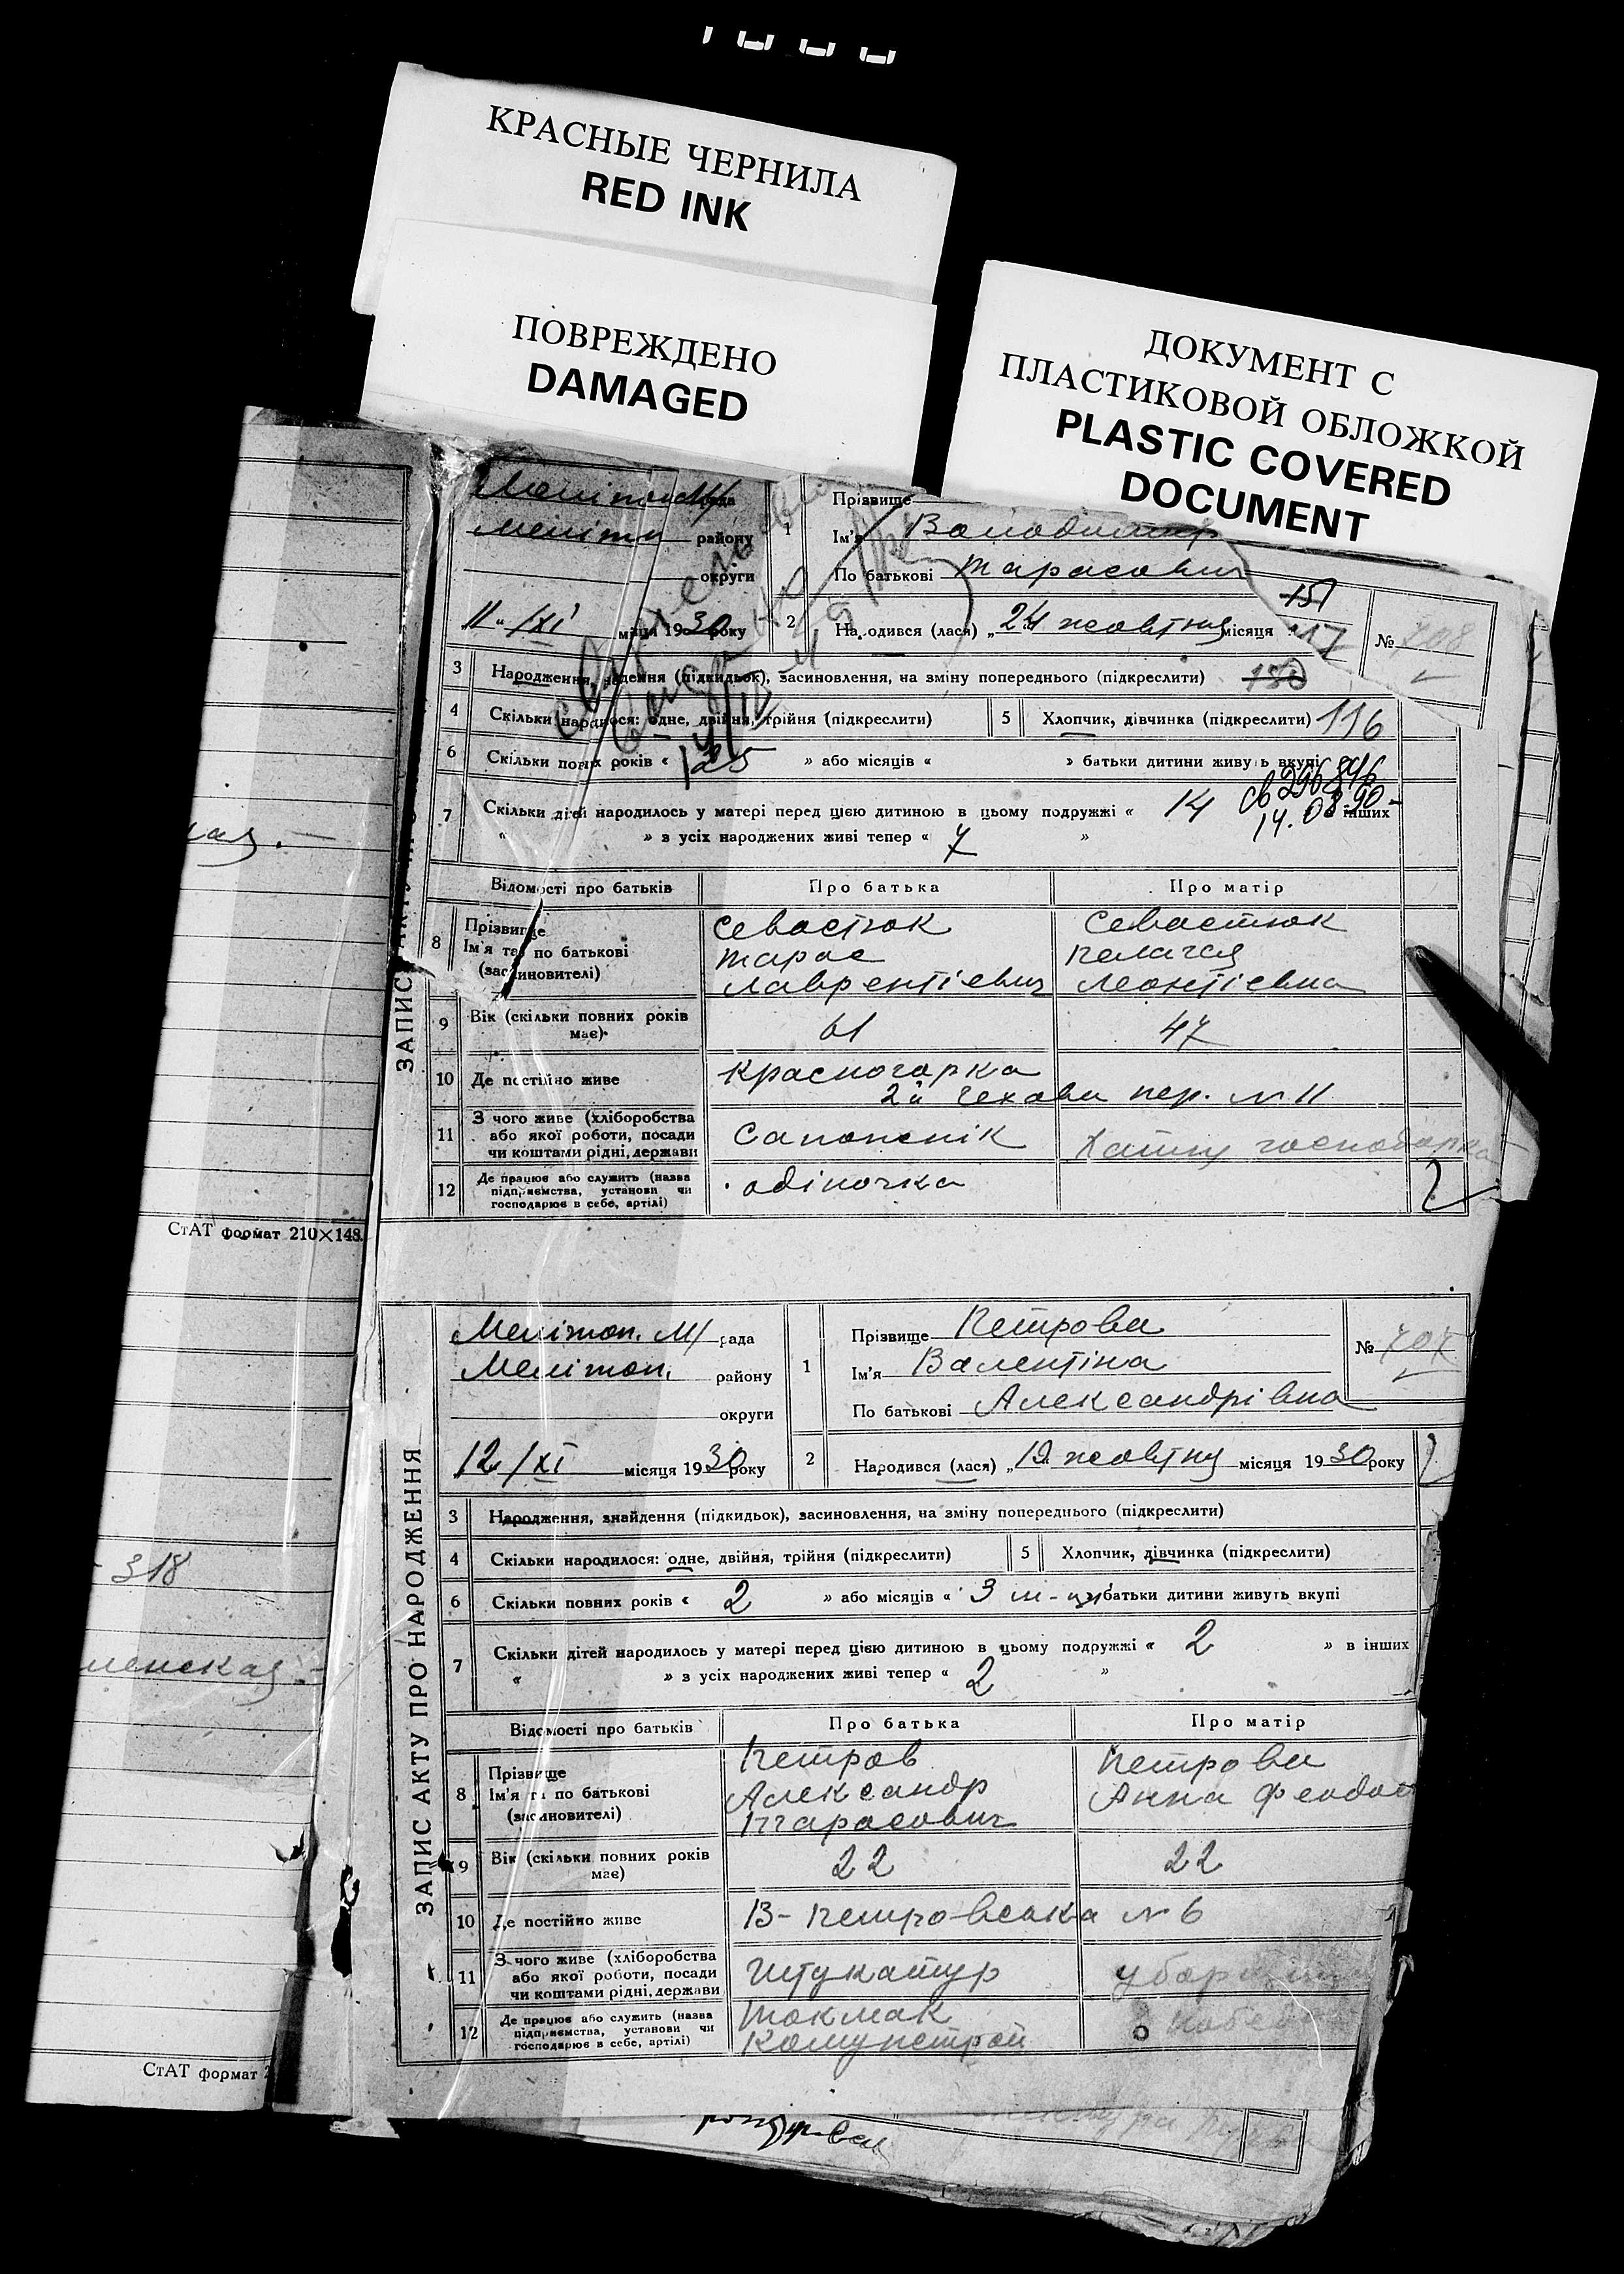 КРАСНЫЕ ЧЕРНИЛА
RED INK
ПОВРЕЖДЕНО
DAMAGED
ДОКУМЕНТ С
ПЛАСТИКОВОЙ ОБЛОЖКОЙ
PLASTIC COVERED
DOCUMENT
ЗАПИС
району
округи
11 /XI місяця 1930 року
1
Прізвище
Ім'я Володимир
По батькові Тарасович
2
Народився (лася) „24 жовтня місяця
151
117
№
3 Народження, знайдення (підкидьок), засиновлення, на зміну попереднього (підкреслити) 130
4 Скільки народилося: одне, двійня, трійня (підкреслити) 5 Хлопчик, дівчинка (підкреслити) 116
6 Скільки повних років « 25 » або місяців « » батьки дитини живуть вкупі
св 296846
14.08.90
7 Скільки дітей народилось у матері перед цією дитиною в цьому подружжі « 14 інших
« » з усіх народжених живі тепер « 7 »
Відомості про батьків Про батька Про матір
8 Прізвище Севастюк Севастюк
Ім'я та по батькові Тарас Пелагея
(засиновителі) Лаврентієвич Леонтієвна
9 Вік (скільки повних років має) 61 47
10 Де постійно живе Красногорка
2й Чехова пер. № 11
11 З чого живе (хліборобства
або якої роботи, посади
чи коштами рідні, держави
Сапожнік
господарка
12 Де працює або служить (назва
підприємства, установи чи
господарює в себе, артілі)
одіночка
СтАТ формат 210×148.
ЗАПИС АКТУ ПРО НАРОДЖЕННЯ
Меліт​оп. М/ рада
Мелітоп. району
округи
12 /XI місяця 1930 року
1
Прізвище Петрова
Ім'я Валентіна
По батькові Александрівна
№ 707
2
Народився (лася) „19 жовтня місяця 1930 року
3 Народження, знайдення (підкидьок), засиновлення, на зміну попереднього (підкреслити)
4 Скільки народилося: одне, двійня, трійня (підкреслити) 5 Хлопчик, дівчинка (підкреслити)
6 Скільки повних років « 2 » або місяців « 3 м-ці батьки дитини живуть вкупі
7 Скільки дітей народилось у матері перед цією дитиною в цьому подружжі « 2 » в інших
« » з усіх народжених живі тепер « 2 »
Відомості про батьків Про батька Про матір
8 Прізвище Петров Петрова
Ім'я та по батькові Александр Анна Феодос
(засиновителі) Тарасович
9 Вік (скільки повних років має) 22 22
10 Де постійно живе В-Петровська № 6
11 З чого живе (хліборобства
або якої роботи, посади
чи коштами рідні, держави
Штукатур
12 Де працює або служить (назва
підприємства, установи чи
господарює в себе, артілі)
Токмак
Комунстрой
318
СтАТ формат 2